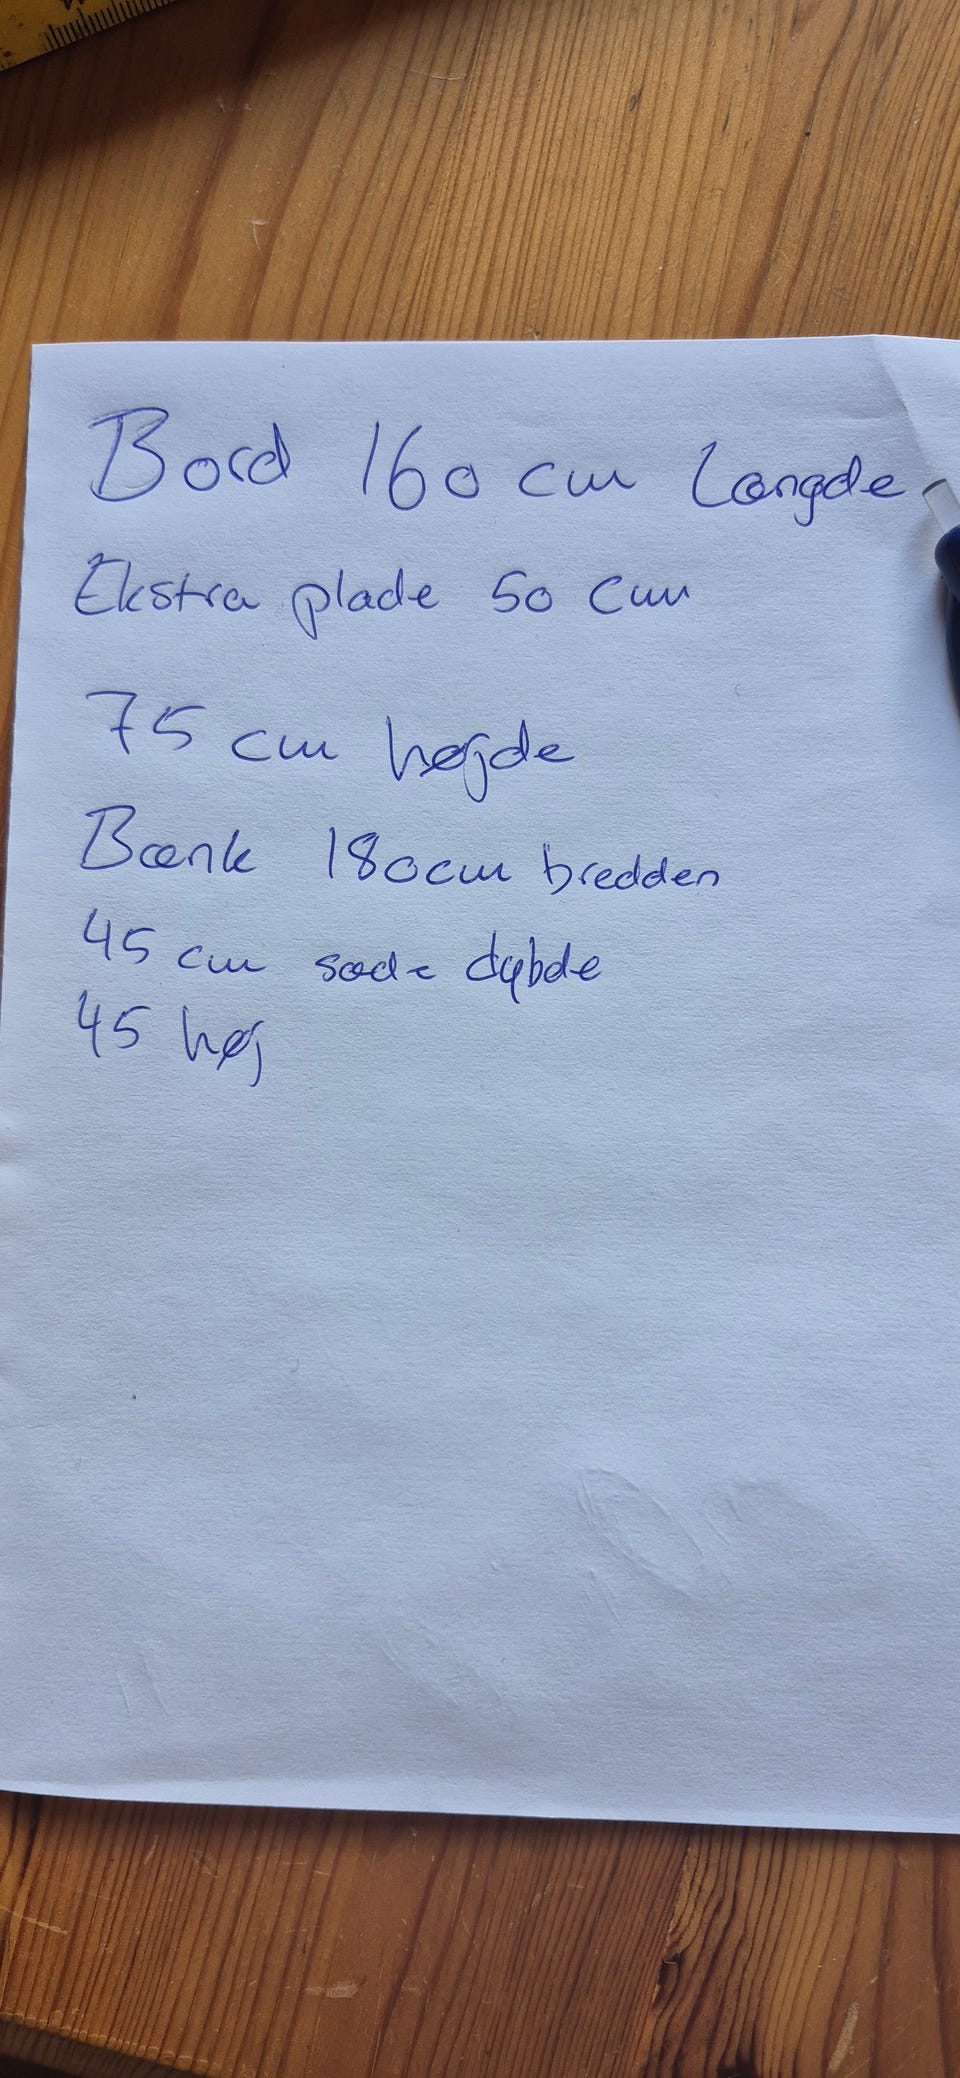 Bord 160 cm Længde
Ekstra plade 50 cm
75 cm højde
Bænk 180cm bredden
45 cm sæde dybde
45 høj